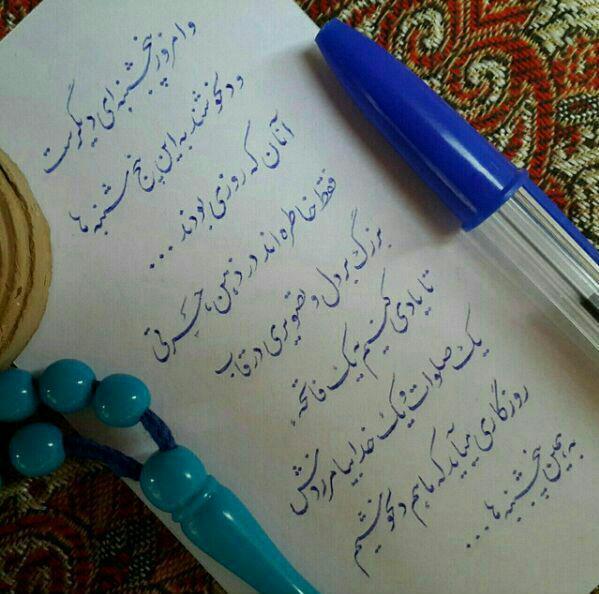 و امروز پنجشنبه‌ای دیگرست
و دلخوشند به این پنج شنبه ها
آنان که روزی بودند ...
فقط خاطره اند در ذهن، حَسرتی
بزرگ بر دل و تصویری در قاب
تا یادی کنیم به یک فاتحه،
یک صلوات و یک خدا بیامرزدش
روزگاری میآید که ما هم دلخوشیم
به همین پنجشنبه ها ...